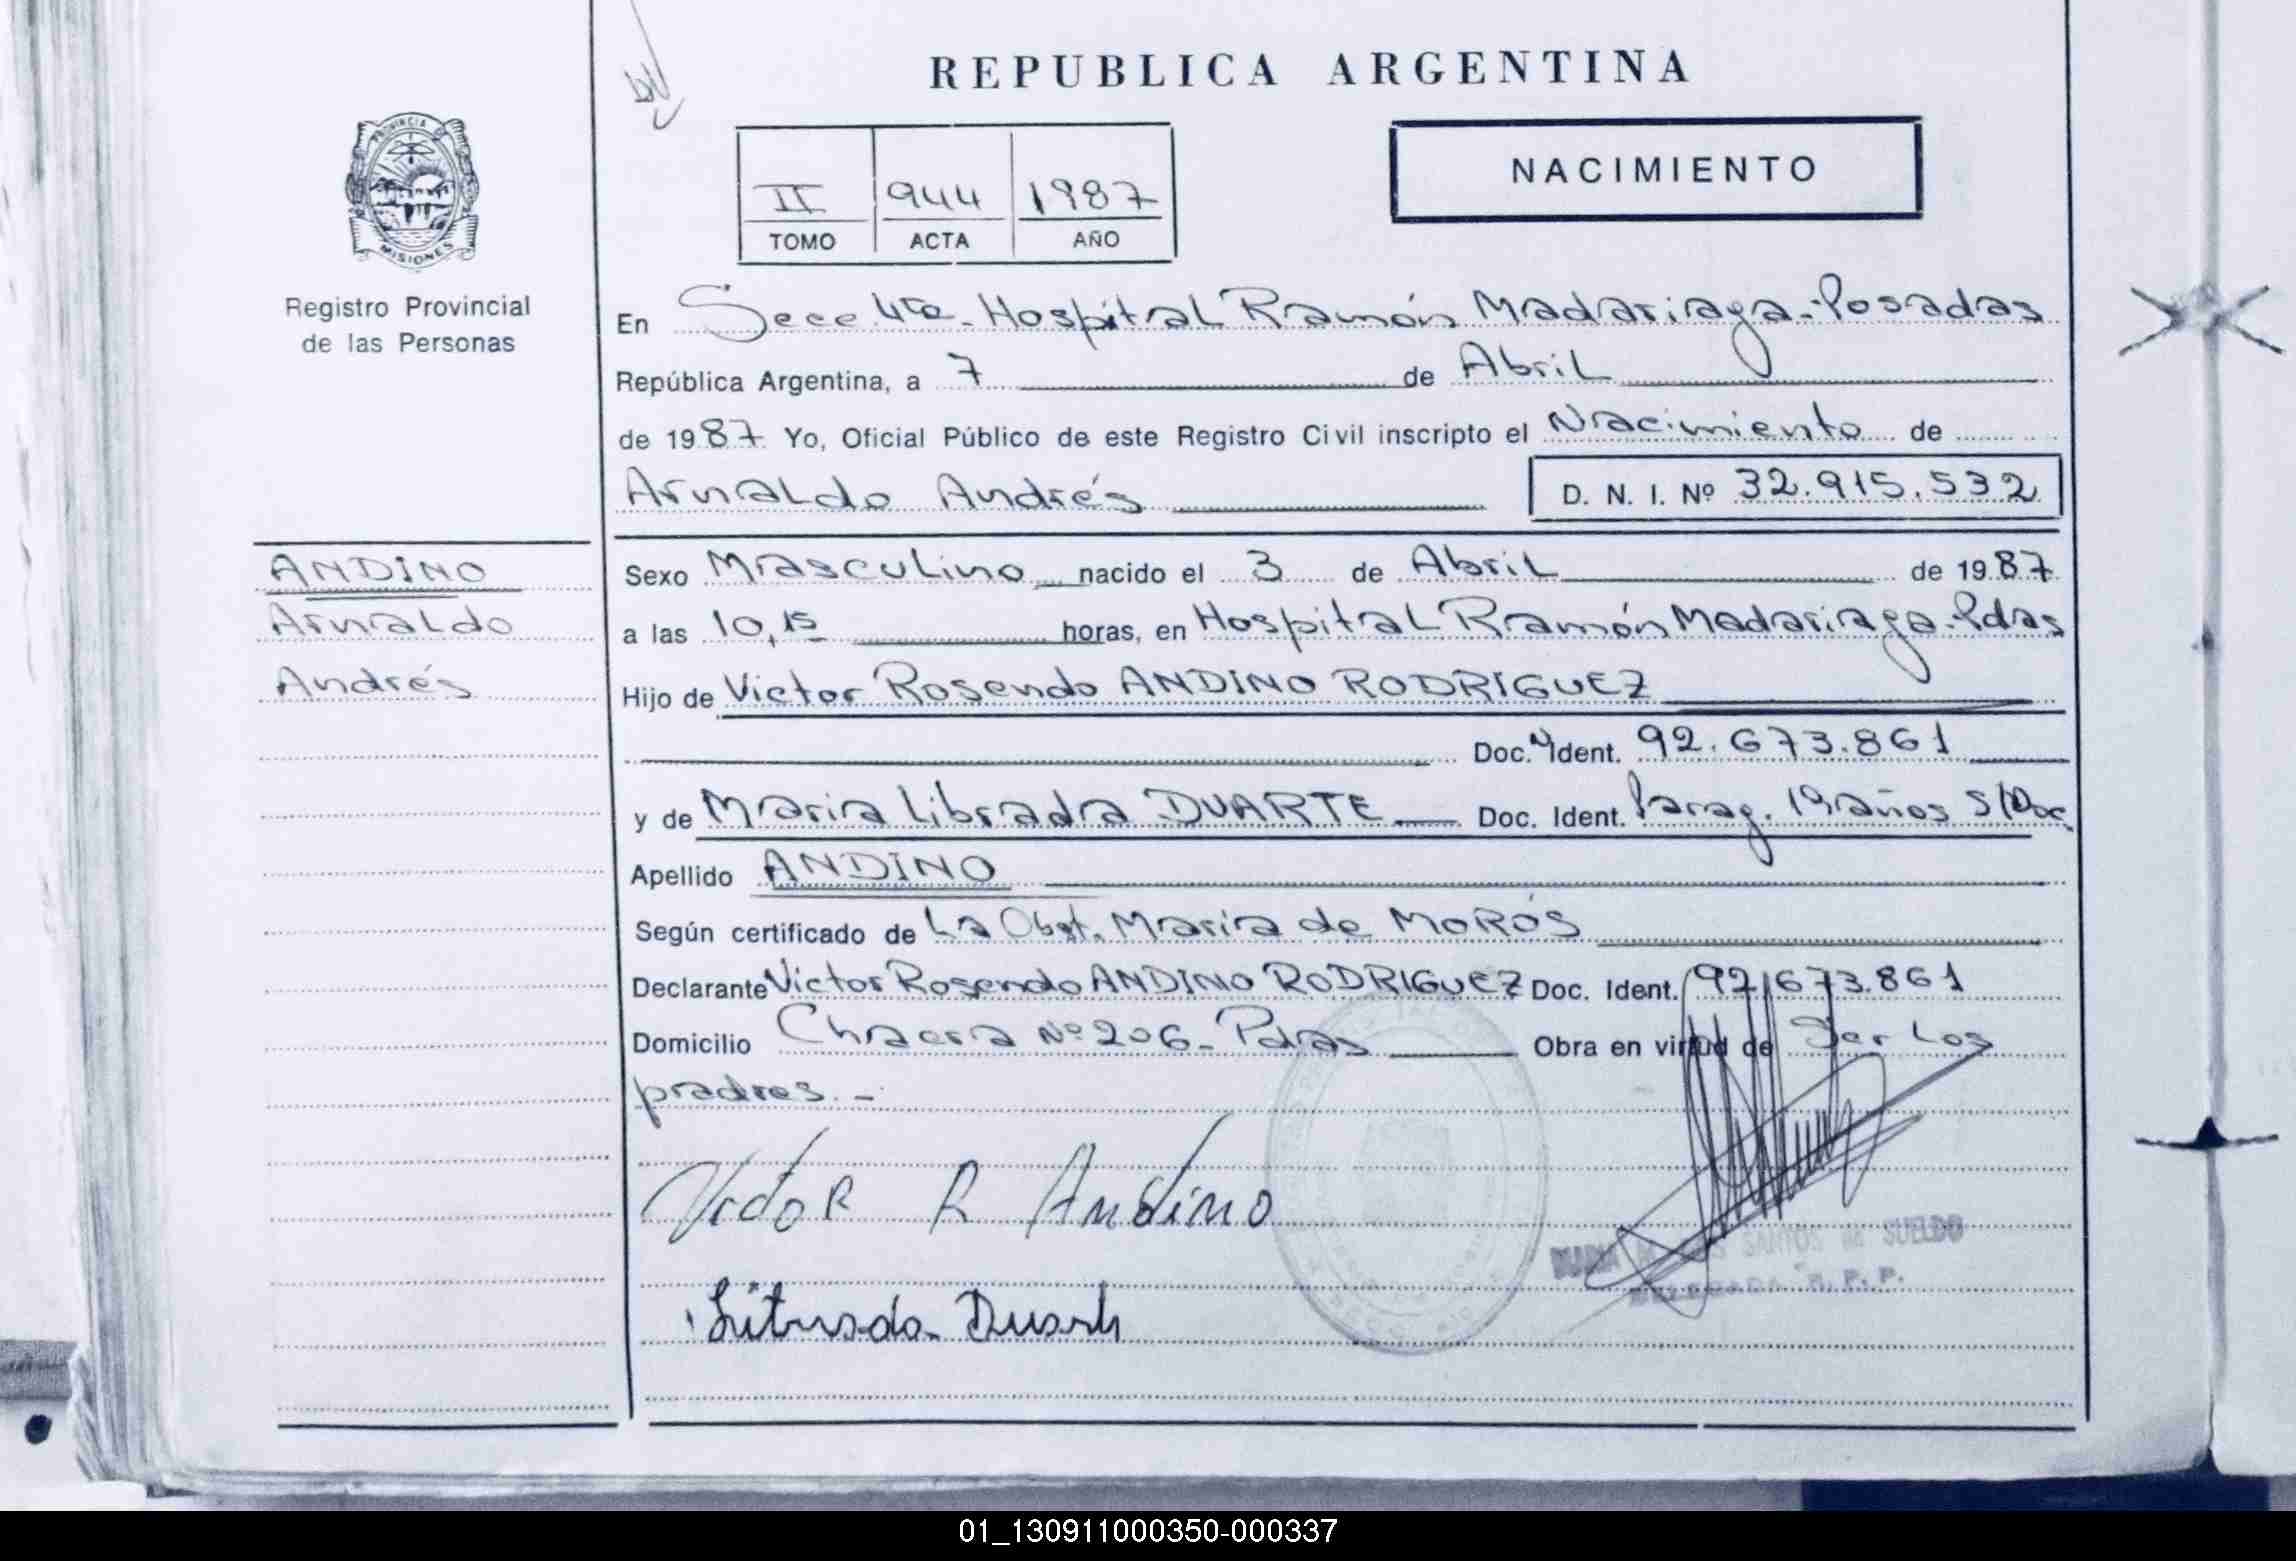 REPUBLICA ARGENTINA
PROVINCIA DE
MISIONES
Registro Provincial
de las Personas
II 944 1987
TOMO ACTA AÑO
NACIMIENTO
En Secc. 4ta. Hospital Ramón Madariaga - Posadas
República Argentina, a 7 de Abril
de 1987 Yo, Oficial Público de este Registro Civil inscripto el Nacimiento de
Arnaldo Andrés D. N. I. Nº 32.915.532
ANDINO
Arnaldo
Andrés
Sexo Masculino nacido el 3 de Abril de 1987
a las 10,15 horas, en Hospital Ramón Madariaga - Pdas
Hijo de Victor Rosendo ANDINO RODRIGUEZ
Doc. Ident. 92.673.861
y de Maria Librada DUARTE Doc. Ident. Parag. 19 años S/Doc.
Apellido ANDINO
Según certificado de La Obst. Maria de MORÓS
Declarante Victor Rosendo ANDINO RODRIGUEZ Doc. Ident. 92.673.861
Domicilio Chacra Nº 206 - Pdas Obra en virtud de Ser Los
padres. -
Victor R Andino
SANTOS de SUELDO
DELEGADA R. P. P.
Librada Duarte
01_130911000350-000337